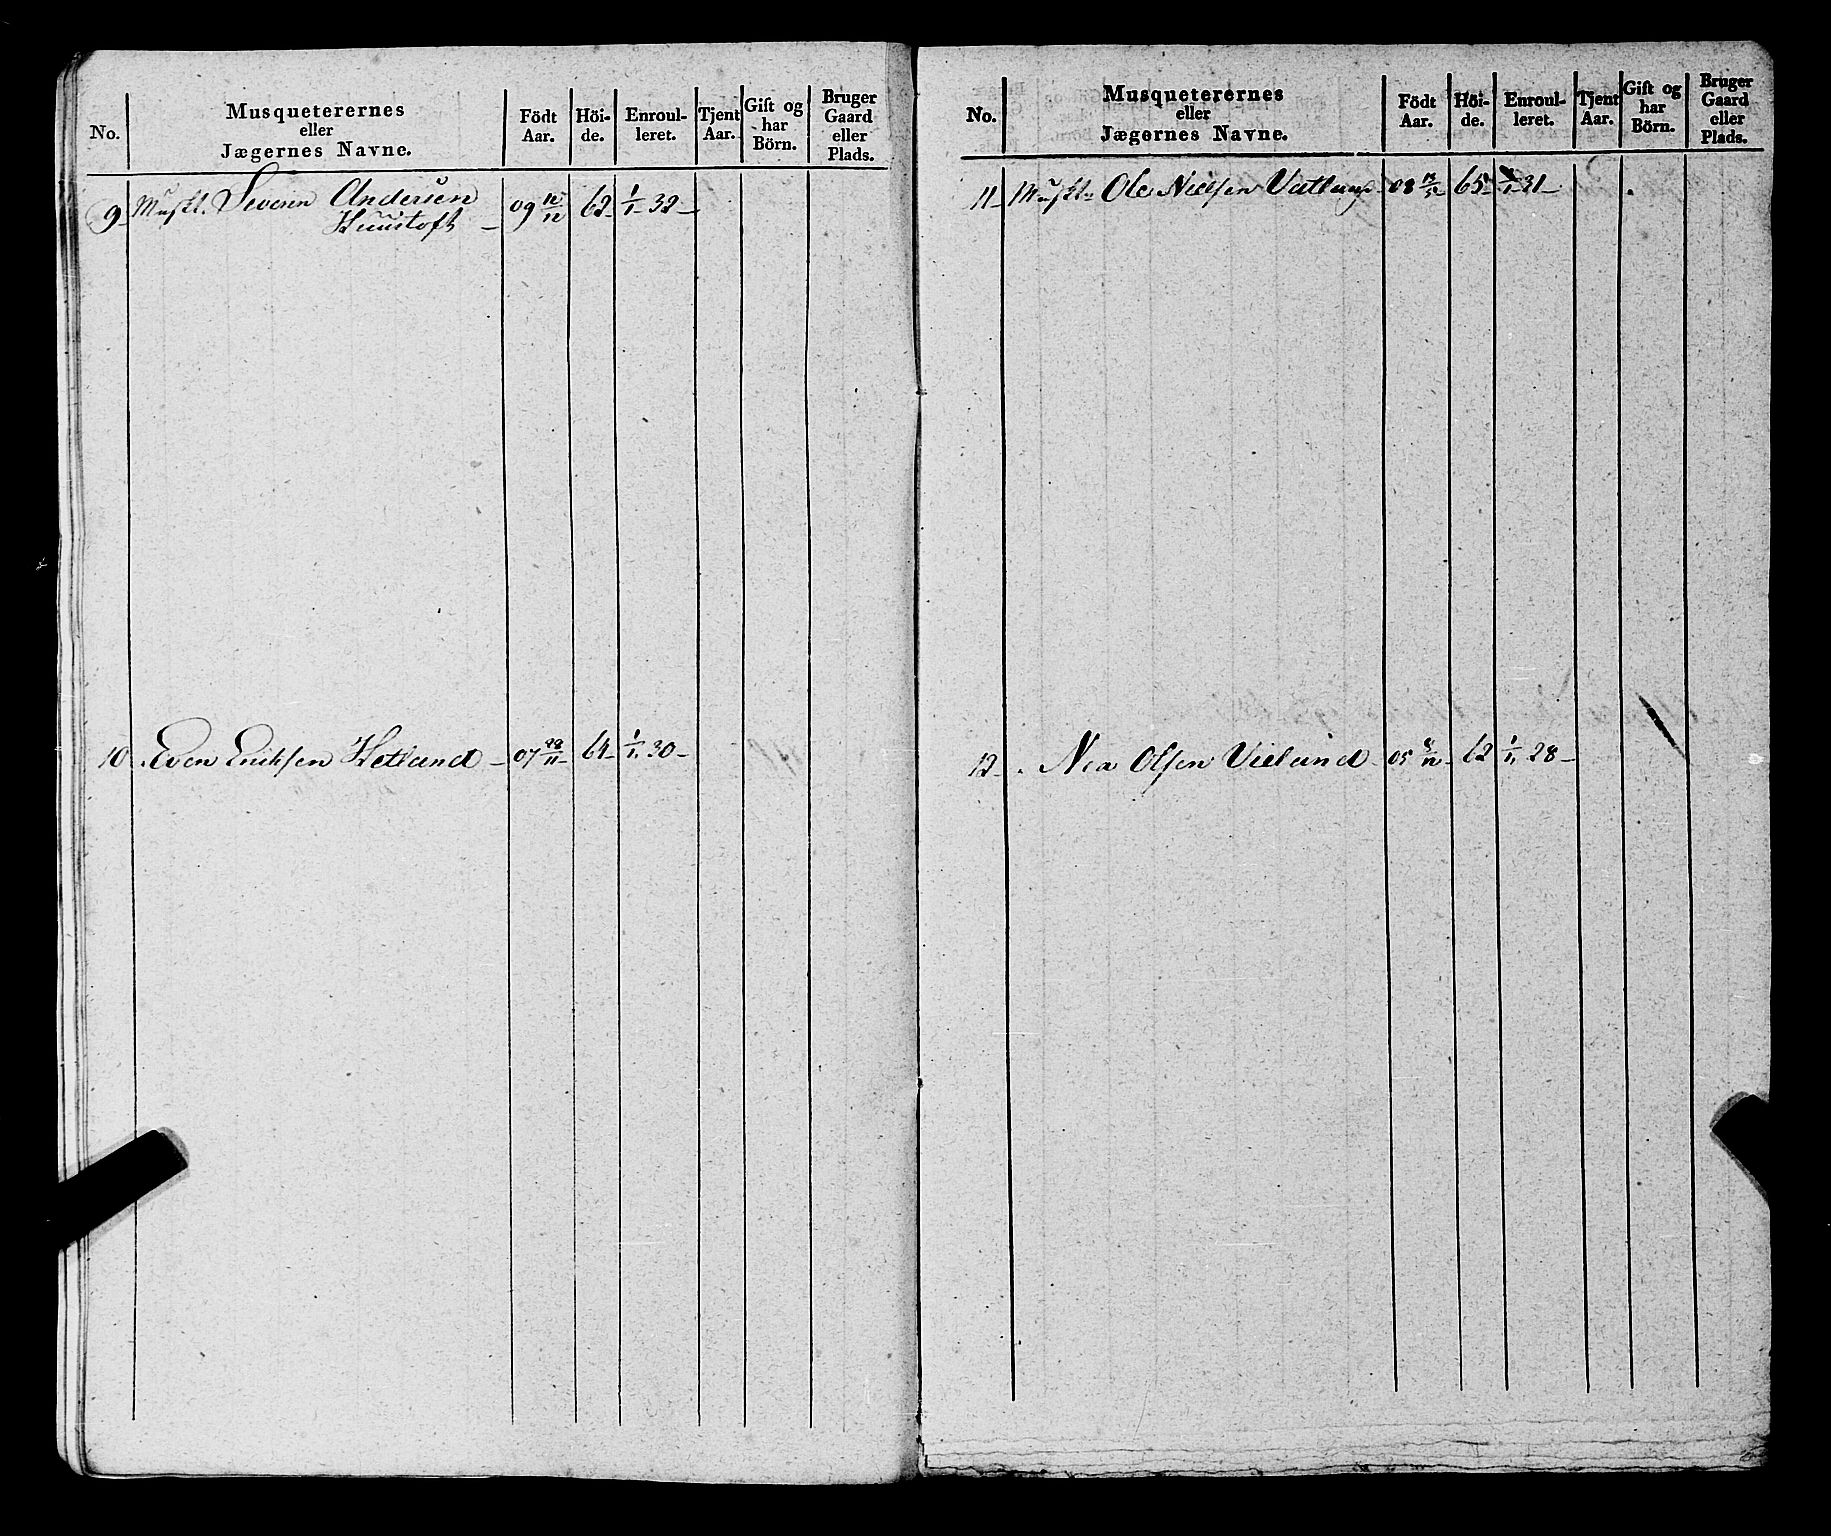 No.
Musqueterernes
eller
Jægernes Navne.
Födt
Aar.
Höi-
de.
Enroul-
leret.
Tjent
Aar.
Gift og
har
Börn.
Bruger
Gaard
eller
Plads.
9 Muskt. Severin Andersen 09 62 1/1 32
10 Even Eriksen Hetland 07 28/11 64 1/1 30
No.
Musqueterernes
eller
Jægernes Navne.
Födt
Aar.
Höi-
de.
Enroul-
leret.
Tjent
Aar.
Gift og
har
Börn.
Bruger
Gaard
eller
Plads.
11 Muskt. Ole Nielsen 08 65 31
12 Olsen 05 62 1/1 28